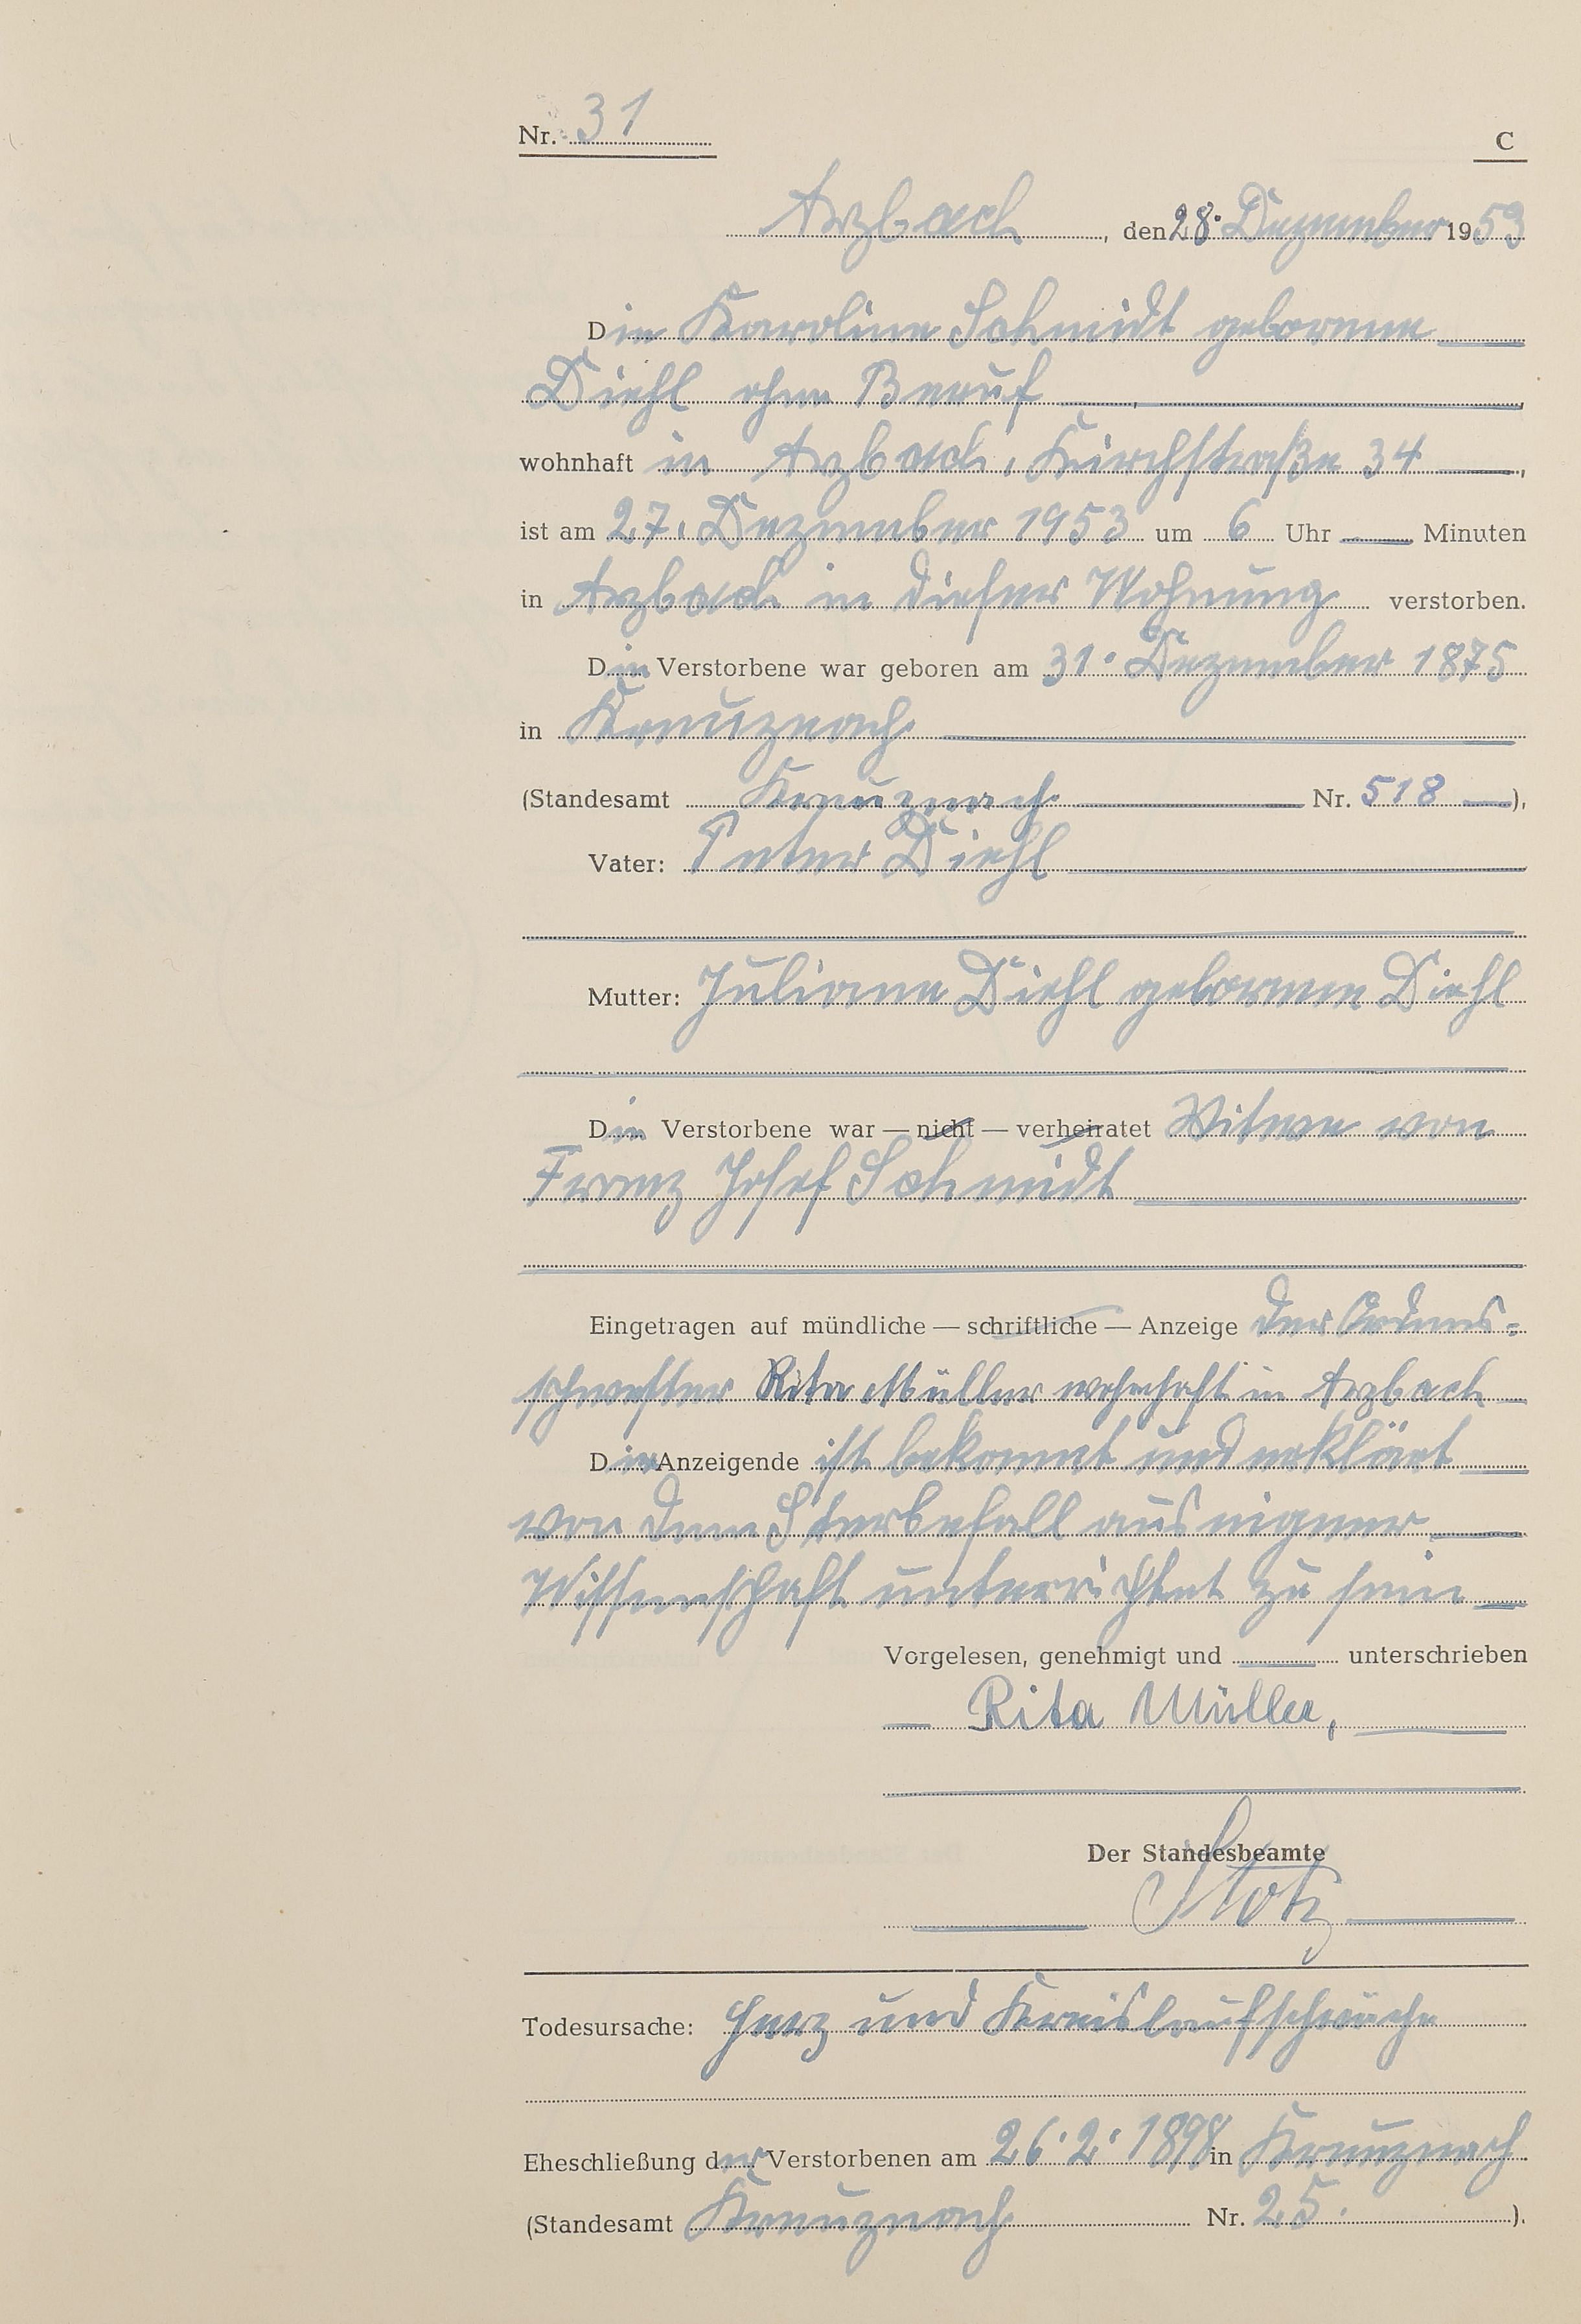 Nr. 31
C
Arzbach, den 28. Dezember 1953
Die Karoline Schmidt geborene
Diehl ohne Beruf
wohnhaft in Arzbach, Kirchstraße 34,
ist am 27. Dezember 1953 um 6 Uhr — Minuten
in Arzbach in dieser Wohnung verstorben.
Die Verstorbene war geboren am 31. Dezember 1875
in Kreuznach
(Standesamt Kreuznach Nr. 518 —),
Vater: Peter Diehl
Mutter: Juliane Diehl geborene Diehl
Die Verstorbene war — nicht — verheiratet Witwe von
Franz Josef Schmidt
Eingetragen auf mündliche — schriftliche — Anzeige der Ordens-
schwester Rita Müller wohnhaft in Arzbach
Die Anzeigende ist bekannt und erklärt
von dem Sterbefall aus eigener
Wissenschaft unterrichtet zu sein
Vorgelesen, genehmigt und — unterschrieben
— Rita Müller,
Der Standesbeamte
Stotz
Todesursache: Herz und Kreislaufschwäche
Eheschließung der Verstorbenen am 26.2.1898 in Kreuznach
(Standesamt Kreuznach Nr. 25.).